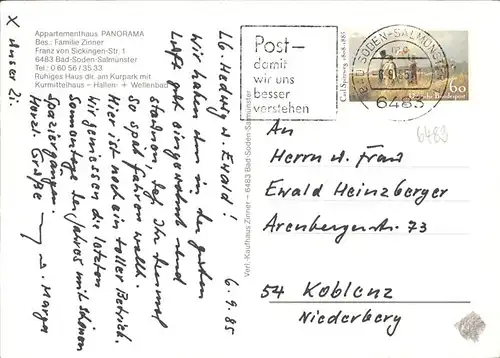 X Unser Zi.
Appartementhaus PANORAMA
Bes.: Familie Zinner
Franz von Sickingen-Str. 1
6483 Bad-Soden-Salmünster
Tel.: 0 60 56 / 35 33
Ruhiges Haus dir. am Kurpark mit
Kurmittelhaus – Hallen- + Wellenbad
6.9.85
Lb. Hedwig u. Ewald!
Wir haben uns in der guten
Luft gut eingewöhnt und
daß Ihr diesmal
so spät fahren wollt.
Hier ist noch ein toller Betrieb.
Wir geniessen die letzten
Sonnentage des Jahres mit schönen
Spaziergängen.
Herzl. Grüße
u. Marga
Verl.-Kaufhaus Zinner – 6483 Bad-Soden-Salmünster
Post–
damit
wir uns
besser
verstehen
BAD SODEN-SALMÜNSTER
6483
Carl Spitzweg 1808-1885
60
Deutsche Bundespost
6483
An
Herrn u. Frau
Ewald Heinzberger
Arenbergerstr. 73
54 Koblenz
Niederberg